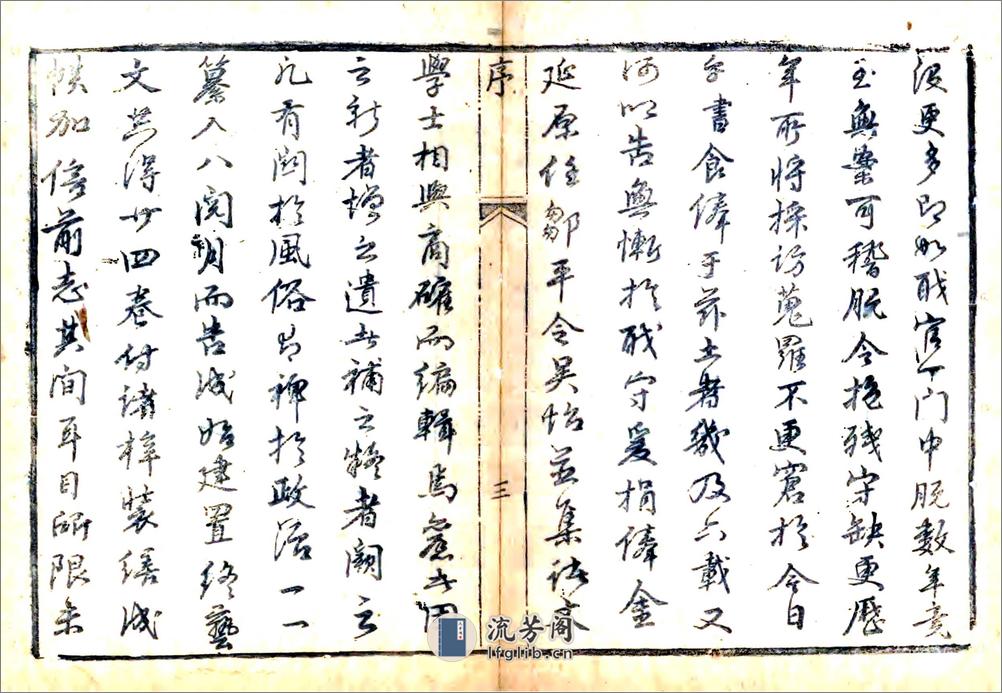 没更多即如職官一門中脫數年竟
至無案可稽脫令抱殘守缺更歷
年所將採訪蒐羅不更窘於今日
乎書食俸于茲土者幾及六載又
何以告無慚於職守爰捐俸金
延原任鄒平令吳怡並集諸文
序
三
學士相與商確而編輯焉舊者因
之新者增之遺者補之疑者闕之
凡有關於風俗有裨於政治一一
纂入八閱朔而告成始建置終藝
文共得廿四卷付諸梓裝繕成
帙加倍前志其間耳目所限未
流芳阁
lfglib.cn